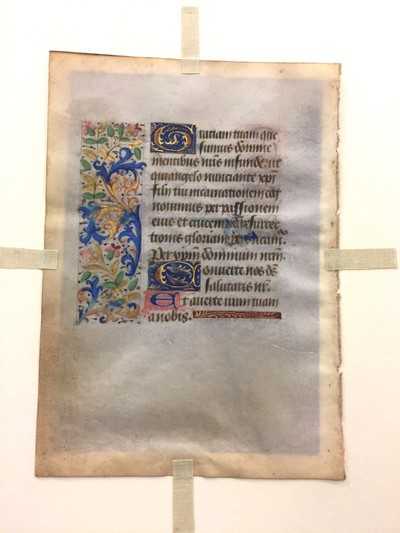 Gratiam tuam que
sumus domine
mentibus nr̃is infunde ut
qui angelo nunciante xp̃i
filii tui incarnationem cog
nouimus per passionem
eius et crucem ad resurrec
tionis gloriam perducam᷒
Per xp̃m dominum nr̃m
Conuerte nos d̃s
salutaris nr̃
Et auerte iram tuam
a nobis.